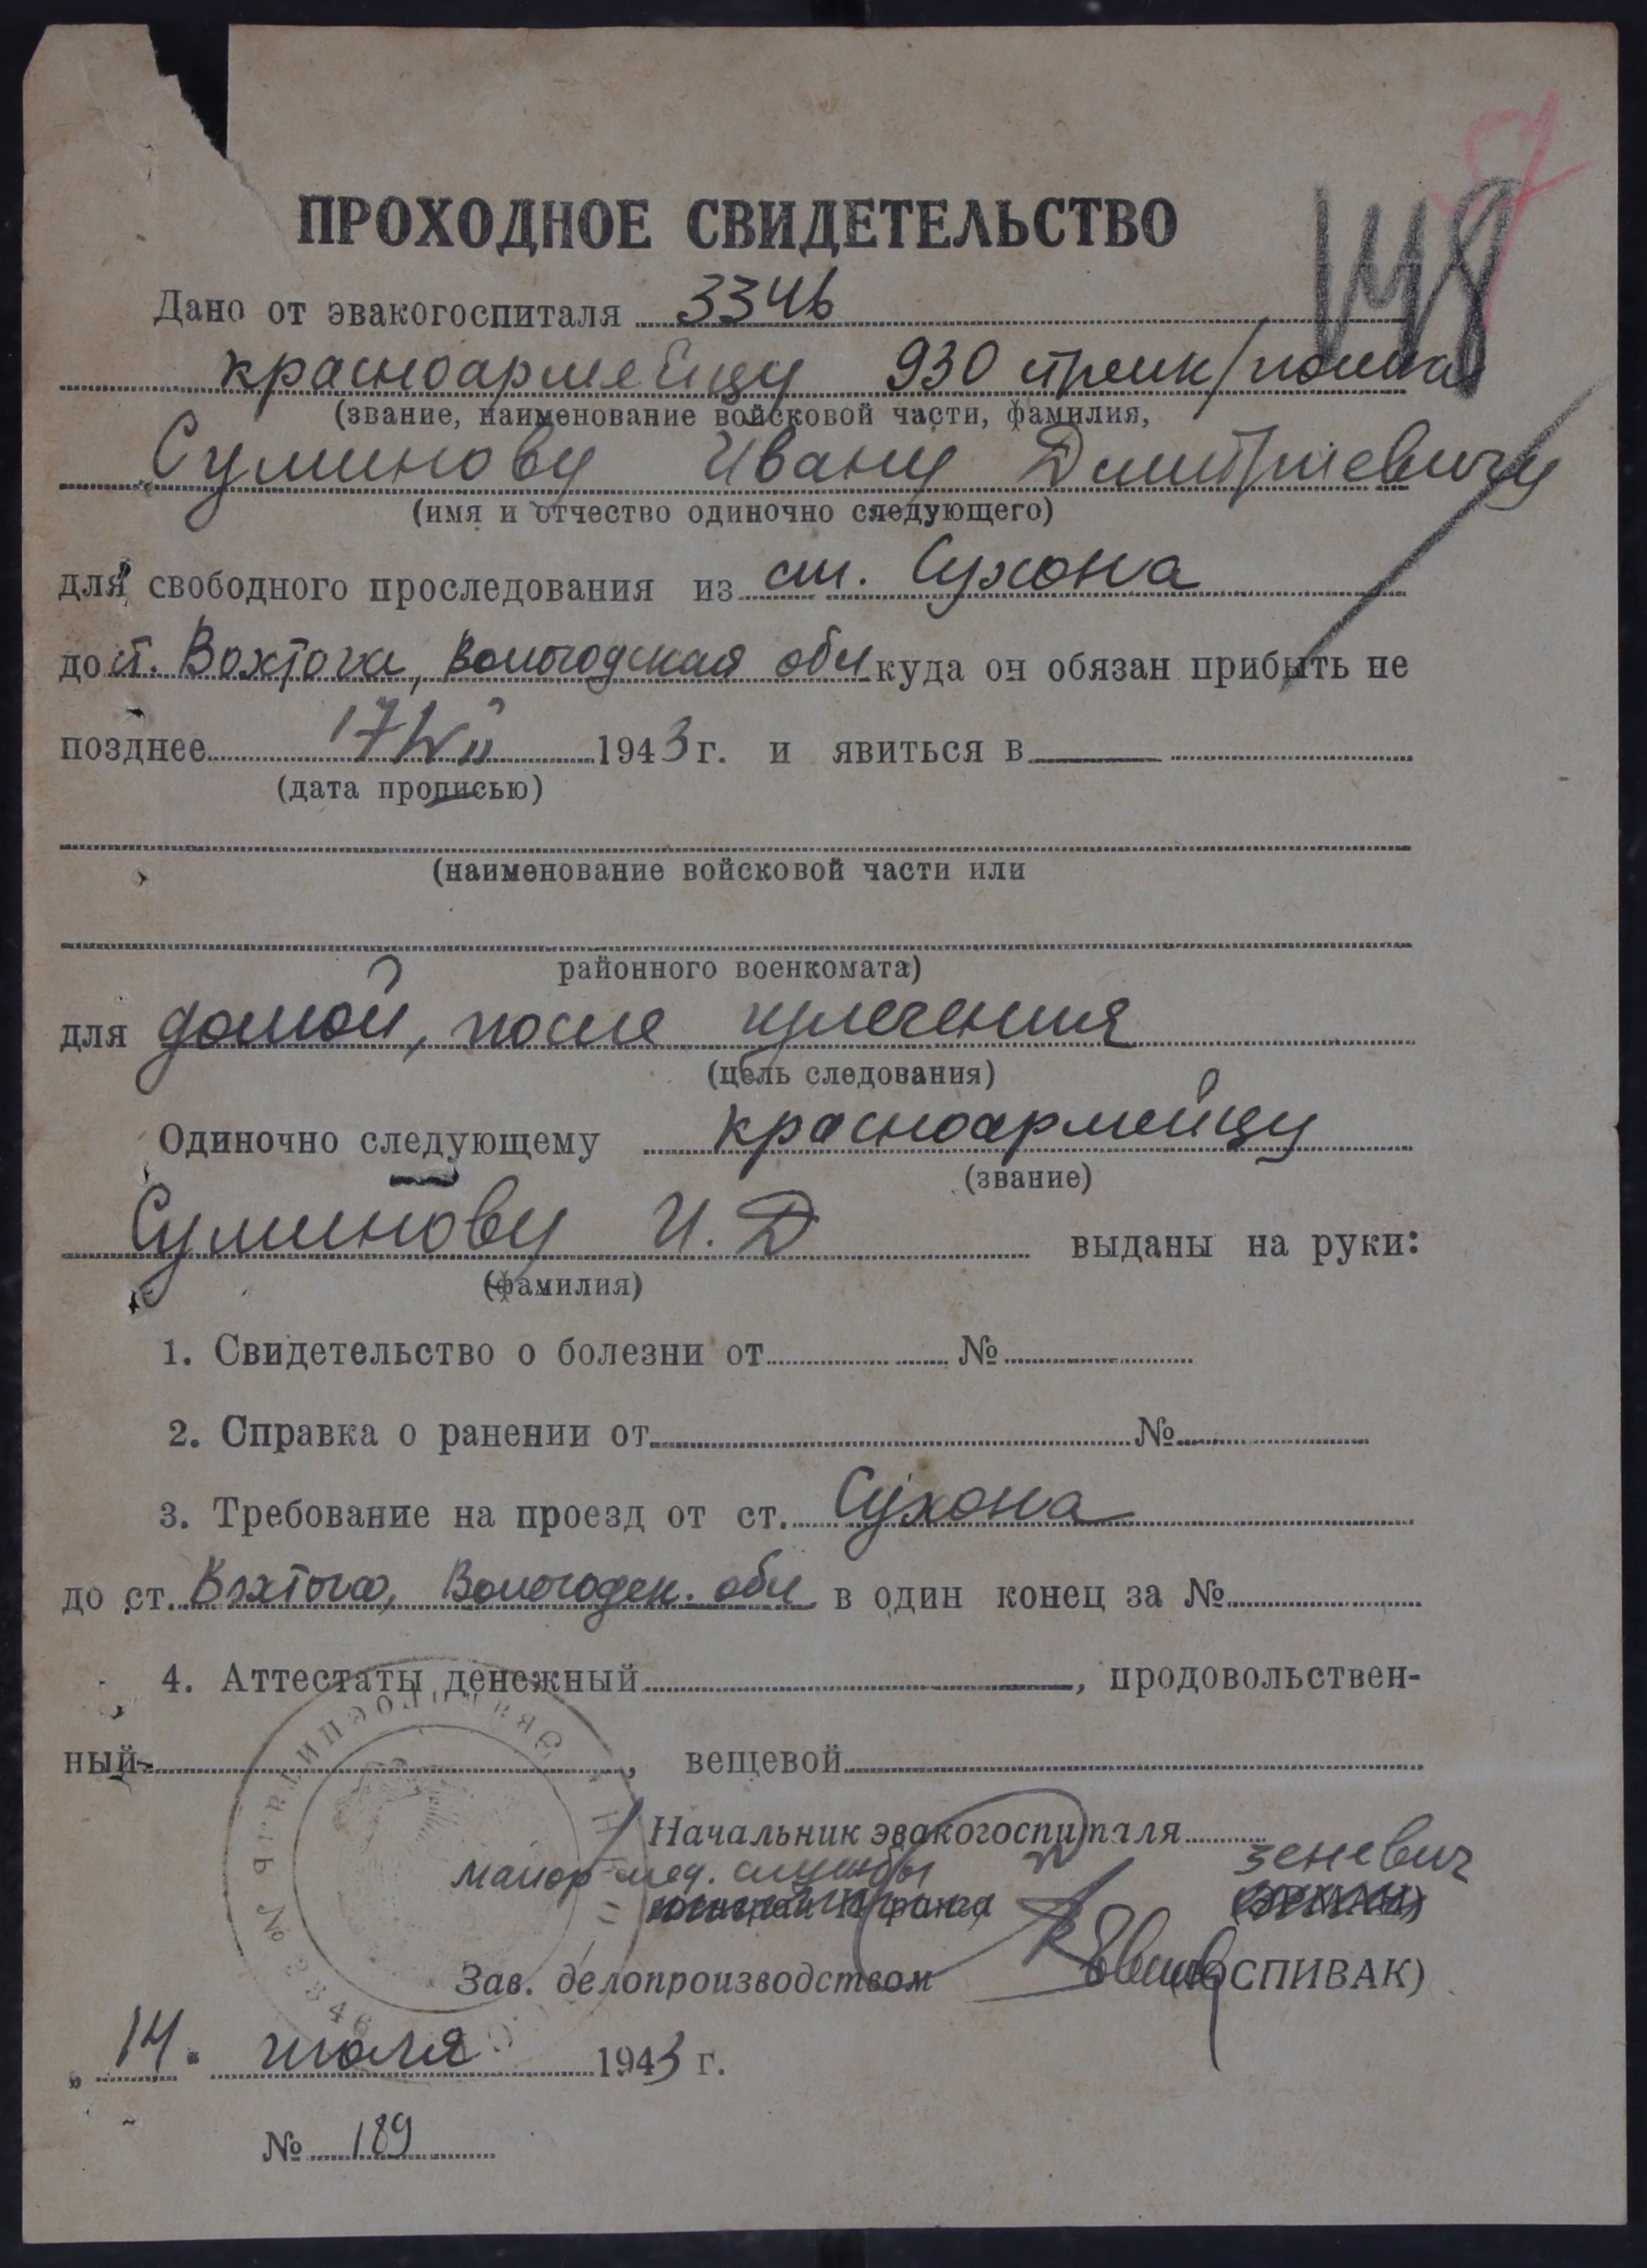 148
ПРОХОДНОЕ СВИДЕТЕЛЬСТВО
Дано от эвакогоспиталя 3346
красноармейцу 930 стрелк/полка
(звание, наименование войсковой части, фамилия,
Суминову Ивану Дмитриевичу
(имя и отчество одиночно следующего)
для свободного проследования из ст. Сухона
до ст. Вохтога, Вологодская обл куда он обязан прибыть не
позднее 17/VII 1943 г. и явиться в
(дата прописью)
(наименование войсковой части или
районного военкомата)
для домой, после излечения
(цель следования)
Одиночно следующему красноармейцу
(звание)
Суминову И. Д выданы на руки:
(фамилия)
1. Свидетельство о болезни от № 
2. Справка о ранении от № 
3. Требование на проезд от ст. Сухона
до ст. Вохтога, Вологодск. обл в один конец за №
4. Аттестаты денежный , продовольствен-
ный , вещевой
Начальник эвакогоспиталя
майор мед. службы Зеневич
(ЭРМАН)
Зав. делопроизводством (СПИВАК)
„ 14 " июля 1943 г.
№ 189